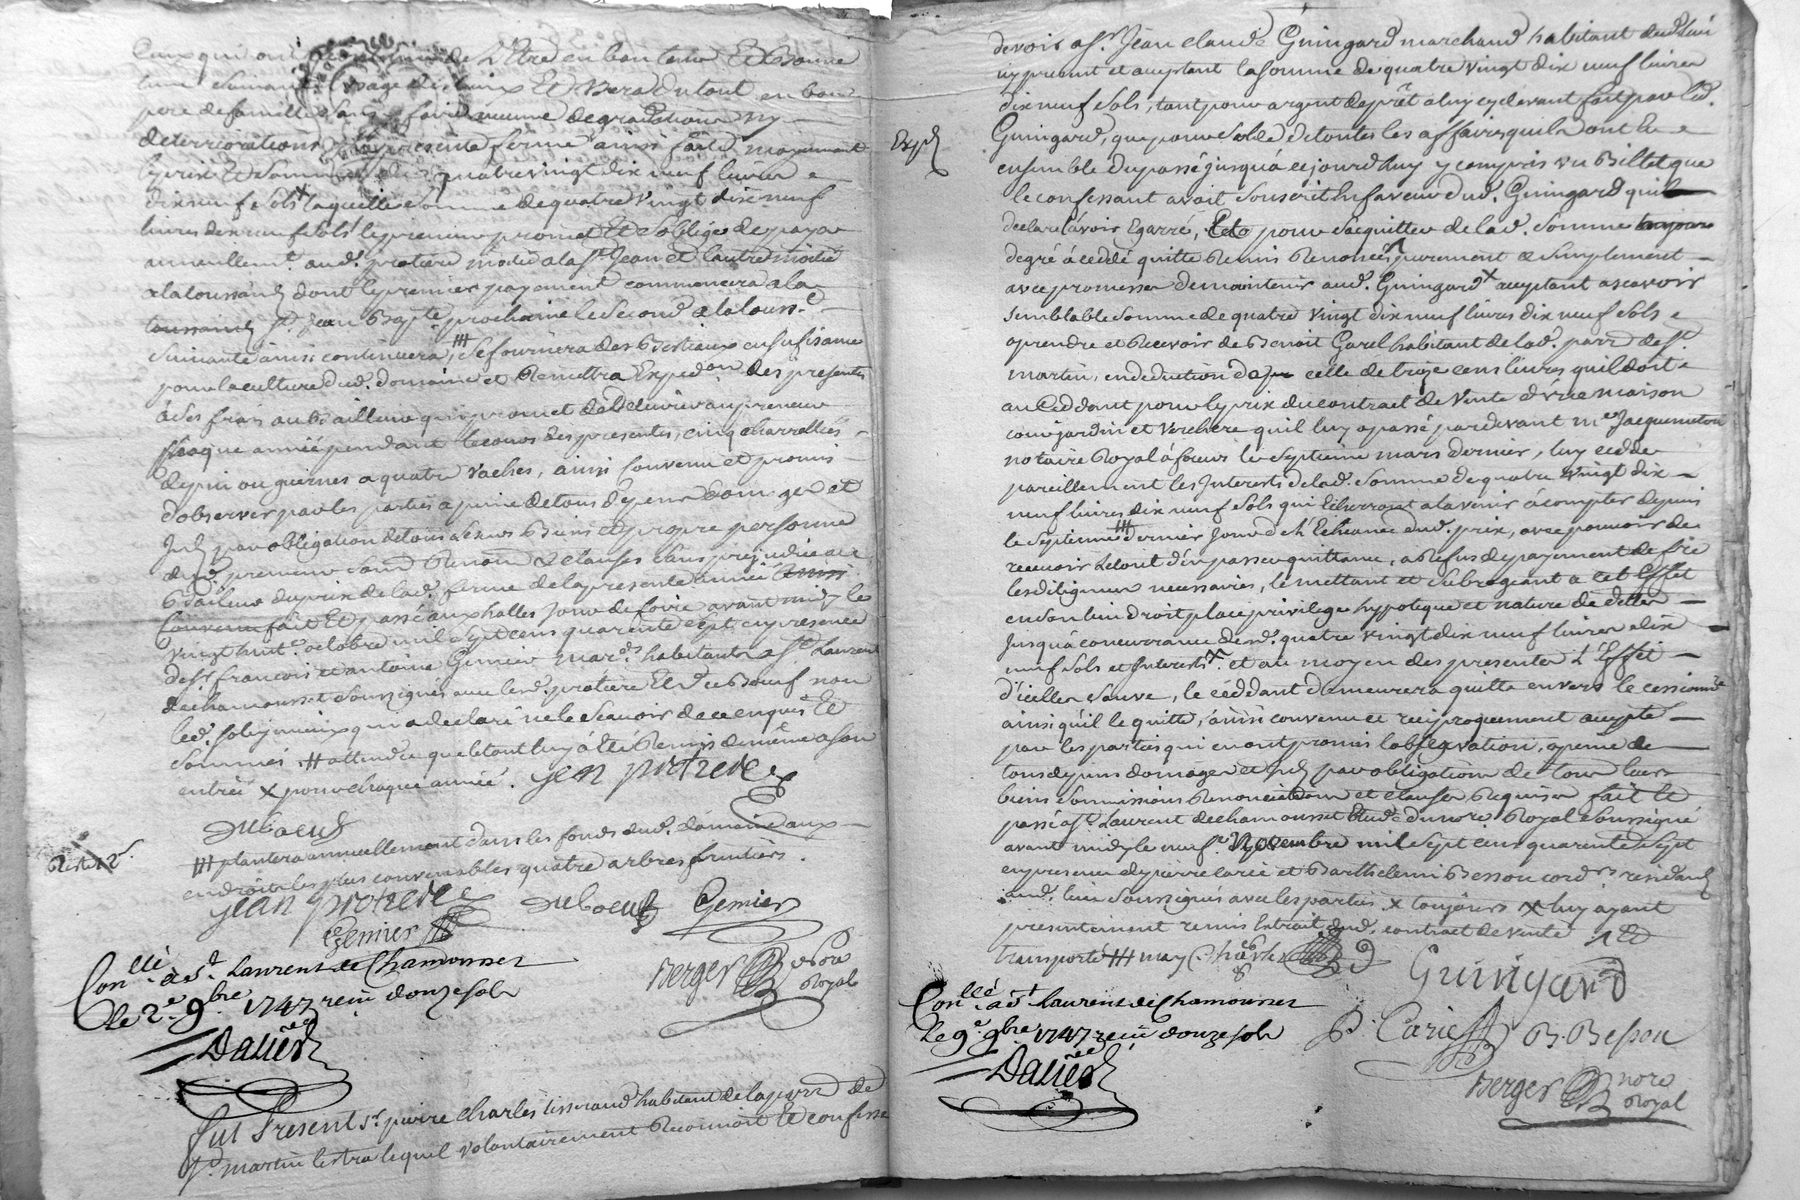 Ceux qui ont de L'Etre en bon Et Bonne
usage des lieux Et Usera du tout en bon
pere de famille sans y faire aucune degradations ny
deterriorations la presente ferme ainsi faite moyennant
le prix Et Somme de quatre vingt dix neuf livres
dix neuf Sols x laquelle Somme de quatre Vingt dix neuf
livres dix neuf Sols le preneur promet Et Soblige de payer
annuellemt. aud. protiere moitié a la St. Jean et l'autre moitié
a la toussaint dont le premier payement commencera a la
toussaint St. Jean Bapte prochaine le Second a la touss.t
Suivante ainsi continuera, ⧻ Se fournira des Bestiaux en sufisance
pour la culture dud. domaine et Remettra Expedon des presentes
à ses frais au Bailleur qui promet de delivrer au preneur
chaque année pendant le cours des presentes, cinq charrettées
de pin ou guernes a quatre vaches, ainsi Convenu et promis
d'observer par les parties a peine de tous depens domages et
par obligation de tous leurs Biens et propre personne
dud. preneur Soum Renon & clauses Sans prejudice au
Bailleur du prix de lad. ferme de la presente année ainsi
Convenu fait Et passé aux halles Jour de foire avant midy le
vingt huite. octobre mil Sept cens quarante Sept en presence
de Sr francois et antoine Gemier mards. habitants a St. Laurent
de chamousset Soussignés avec led. protiere Et Duboeuf non
led. qui a declaré ne le Scavoir de ce enquis Et
Sommé. ⧻ attendu que le tout luy a été Remis de même a Son
entrée x pour chaque année. jean protiere
Duboeuf
⧻ plantera annuellement dans les fonds dud. domaine aux
endroits les plus convenables quatre arbres fruitiers.
Reste 12s.
jean protiere Duboeuf Gemier
Gemier
Conllé à St. Laurent de Chamousset
le 2e. 9bre 1747 reçu douze sols
Dalier
Berger Nore Royal
Fut Present Sr. pierre Charles tisserand habitant de la parr. de
St. martin lestra lequel volontairement Reconnoit Et confesse
devoir a Sr. Jean claude Guingard marchand habitant dud. lieu
icy present et acceptant la Somme de quatre vingt dix neuf livres
dix neuf Sols, tant pour argent de prêt a luy cy devant fait par led.
Expd
Guingard, que pour Solde de toutes les affaires quils ont Eu
ensemble du passé jusqu'à ce jourd'huy y compris un Billet que
le confessant avoit Souscrit En faveur dud. Guingard qu'il
declare l'avoir Egarré, Et pour Sacquitter de lad. Somme
de gré à ceddé quitte Remis Renoncé purement & Simplement
avec promesse de maintenir aud. Guingard x acceptant ascavoir
Semblable Somme de quatre Vingt dix neuf livres dix neuf Sols
a prendre et Recevoir de Benoit Garel habitant de lad. parr. de St.
martin, en deduction de celle de treize cens livres quil doit
au Ceddant pour le prix du contract de Vente d'une maison
cour jardin et Verchere quil luy a passé pardevant me Jacquemeton
notaire Royal à feurs le Septieme mars dernier, luy cedde
pareillement les Interests de lad. Somme de quatre vingt dix
neuf livres dix neuf Sols qui Echerront a lavenir à compter depuis
le Septieme ⧻ dernier Jour de L'Echeance dud. prix, avec pouvoir de
recevoir Ledit d'en passer quittance, a Refus de payement de fre
les diligences necessaires, le mettant et Subrogeant a cet Effet
en Son lieu droit place privilege hypoteque et nature de dette
Jusqu'à concurrance desd. quatre vingt dix neuf livres dix
neuf Sols et Interests x. et au moyen des presentes L'Effet
d'icelles Sauve, le céddant demeurera quitte envers le cessionre
ainsi qu'il le quitte, ainsi convenu et reciproquement accepté
par les parties qui en ont promis l'observation, a peine de
tous depens domages et par obligation de tous leurs
biens Soumissions Renonciation et clauses Requises fait Et
passé a St. Laurent de chamousset Etude du nore Royal Soussigné
avant midy le neufe Novembre mil Sept cens quarante Sept
en presence de pierre carié et Barthelemi Besson cordrs residants
aud. lieu Soussignés avec les parties. x toujours x luy ayant
presentement remis Extrait dud. contract de vente
transporté ⧻ may Charles
Guingard
P. Carié B. Besson
Conllé à St Laurent de Chamousset
le 9e. 9bre. 1747 reçu douze sols
Dalier
Berger nore Royal